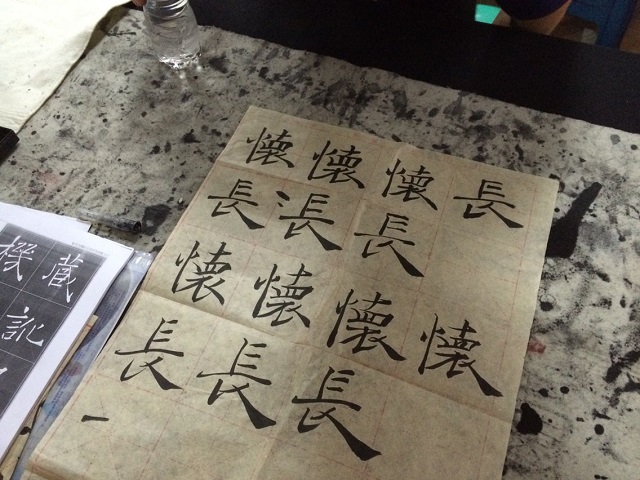 懐懐懐長
長長長
懐懐懐懐
長長長
一
機藏
訛